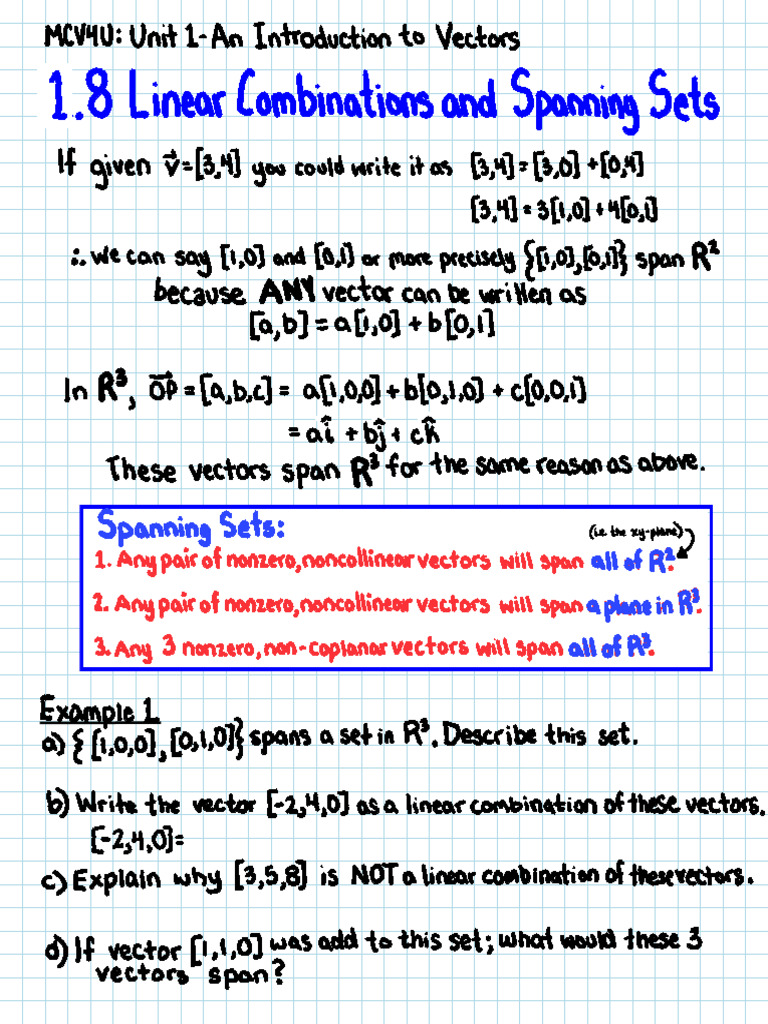 MCV4U: Unit 1-An Introduction to Vectors
1.8 Linear Combinations and Spanning Sets
If given v⃗=[3,4] you could write it as [3,4]=[3,0]+[0,4]
[3,4]=3[1,0]+4[0,1]
∴ we can say [1,0] and [0,1] or more precisely {[1,0],[0,1]} span R²
because ANY vector can be written as
[a,b]=a[1,0]+b[0,1]
In R³, OP⃗=[a,b,c]= a[1,0,0]+b[0,1,0]+c[0,0,1]
=aî+bĵ+ck̂
These vectors span R³ for the same reason as above.
Spanning Sets:
(i.e. the xy-plane)
1. Any pair of nonzero, noncollinear vectors will span all of R².
2. Any pair of nonzero, noncollinear vectors will span a plane in R³.
3. Any 3 nonzero, non-coplanar vectors will span all of R³.
Example 1
a) {[1,0,0],[0,1,0]} spans a set in R³. Describe this set.
b) Write the vector [-2,4,0] as a linear combination of these vectors.
[-2,4,0]=
c) Explain why [3,5,8] is NOT a linear combination of these vectors.
d) If vector [1,1,0] was add to this set; what would these 3
vectors span?